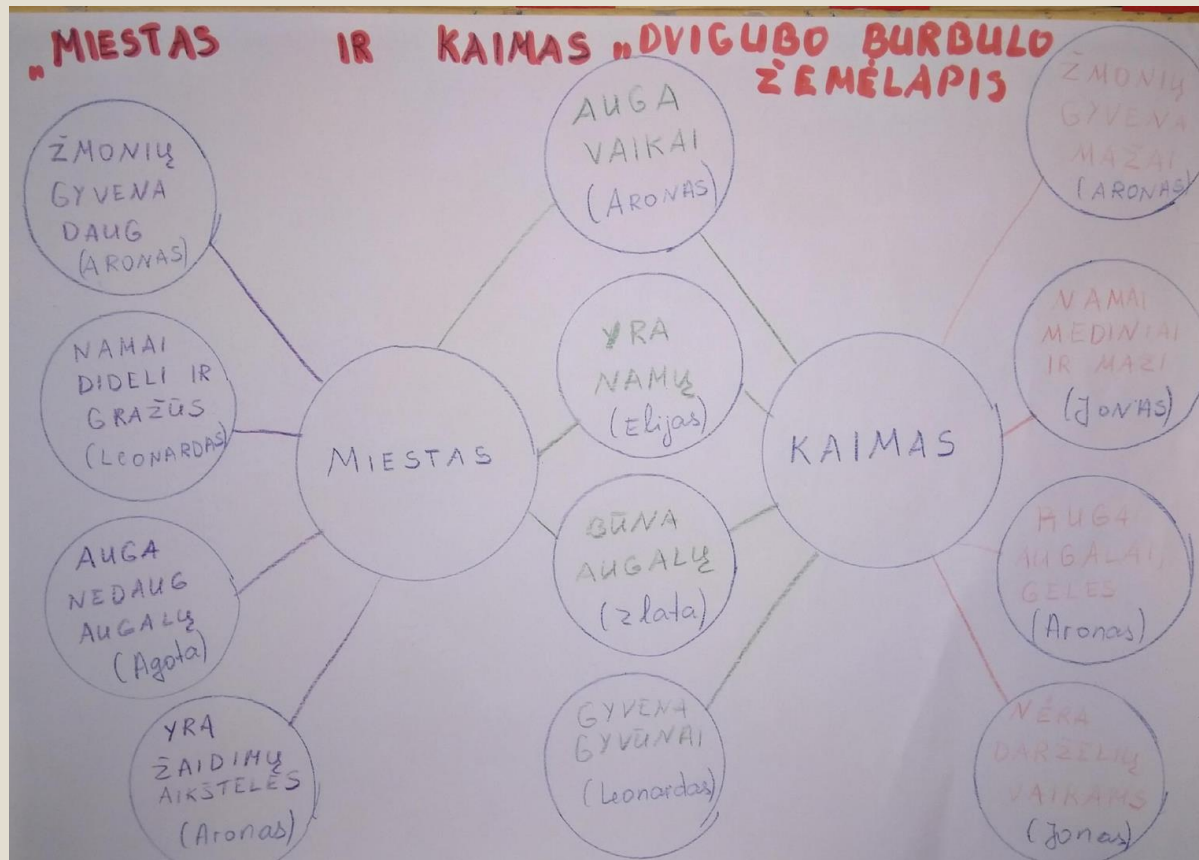 „MIESTAS IR KAIMAS „DVIGUBO BURBULO
ŽEMĖLAPIS
ŽMONIŲ
GYVENA
DAUG
(ARONAS)
NAMAI
DIDELI IR
GRAŽŪS
(LEONARDAS)
AUGA
NEDAUG
AUGALŲ
(Agota)
YRA
ŽAIDIMŲ
AIKŠTELĖS
(Aronas)
MIESTAS
AUGA
VAIKAI
(ARONAS)
YRA
NAMŲ
(Elijas)
BŪNA
AUGALŲ
(Zlata)
GYVENA
GYVŪNAI
(Leonardas)
KAIMAS
ŽMONIŲ
GYVENA
MAŽAI
(ARONAS)
NAMAI
MEDINIAI
IR MAŽI
(JONAS)
AUGA
AUGALAI,
GĖLĖS
(Aronas)
NĖRA
DARŽELIŲ
VAIKAMS
(Jonas)